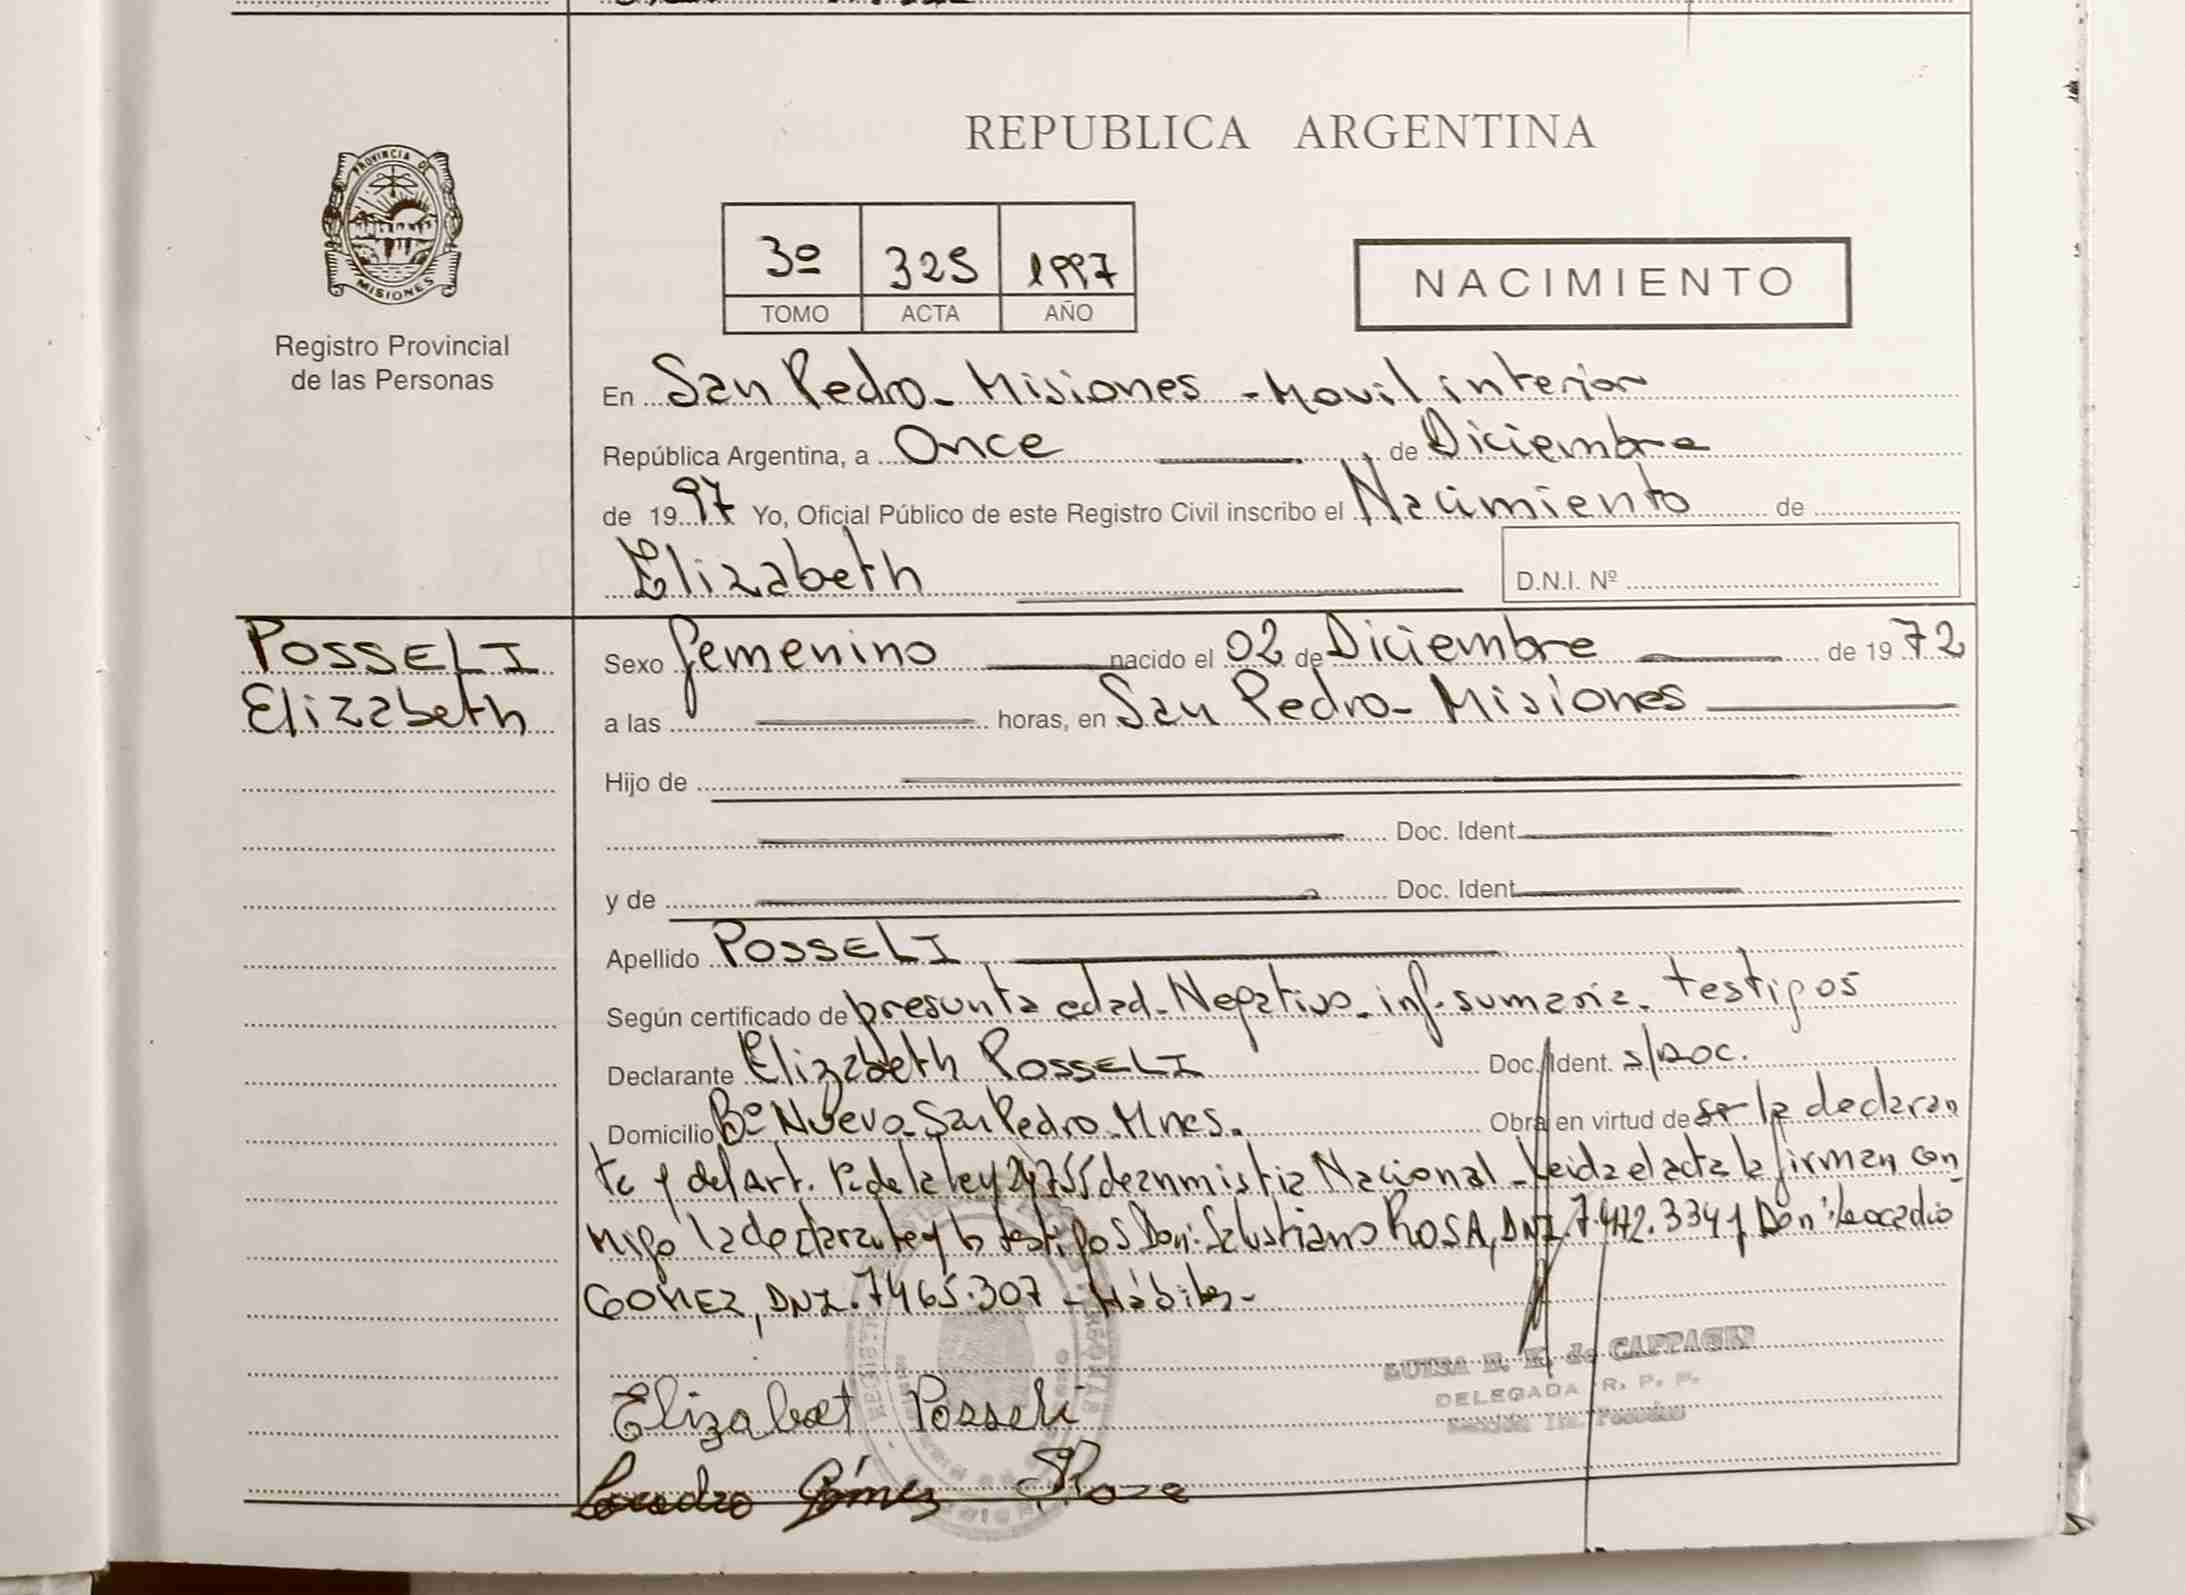 PROVINCIA DE
MISIONES
Registro Provincial
de las Personas
REPUBLICA ARGENTINA
3º 325 1997
TOMO ACTA AÑO
NACIMIENTO
En San Pedro - Misiones - Movil interior
República Argentina, a Once de Diciembre
de 1997 Yo, Oficial Público de este Registro Civil inscribo el Nacimiento de
Elizabeth
D.N.I. Nº
POSSELI
Elizabeth
Sexo femenino nacido el 02 de Diciembre de 1972
a las horas, en San Pedro - Misiones
Hijo de
Doc. Ident.
y de Doc. Ident.
Apellido POSSELI
Según certificado de presunta edad - Negativo - inf. sumaria - testigos
Declarante Elizabeth POSSELI Doc. Ident. s/Doc.
Domicilio Bº Nuevo - San Pedro - Mnes. Obra en virtud de la declaran
te y del Art. de la ley 24755 de anmistia Nacional - Leida el acta la firman con
migo la declarante y los testigos Don: Salustiano ROSA, DNI. 7.472.334 y Don: Leocadio
GOMEZ, DNI. 7465.307 - Hábiles -
Elizabet Posseli
Gómez Roza
LUISA E. K. de
DELEGADA R. P. P.